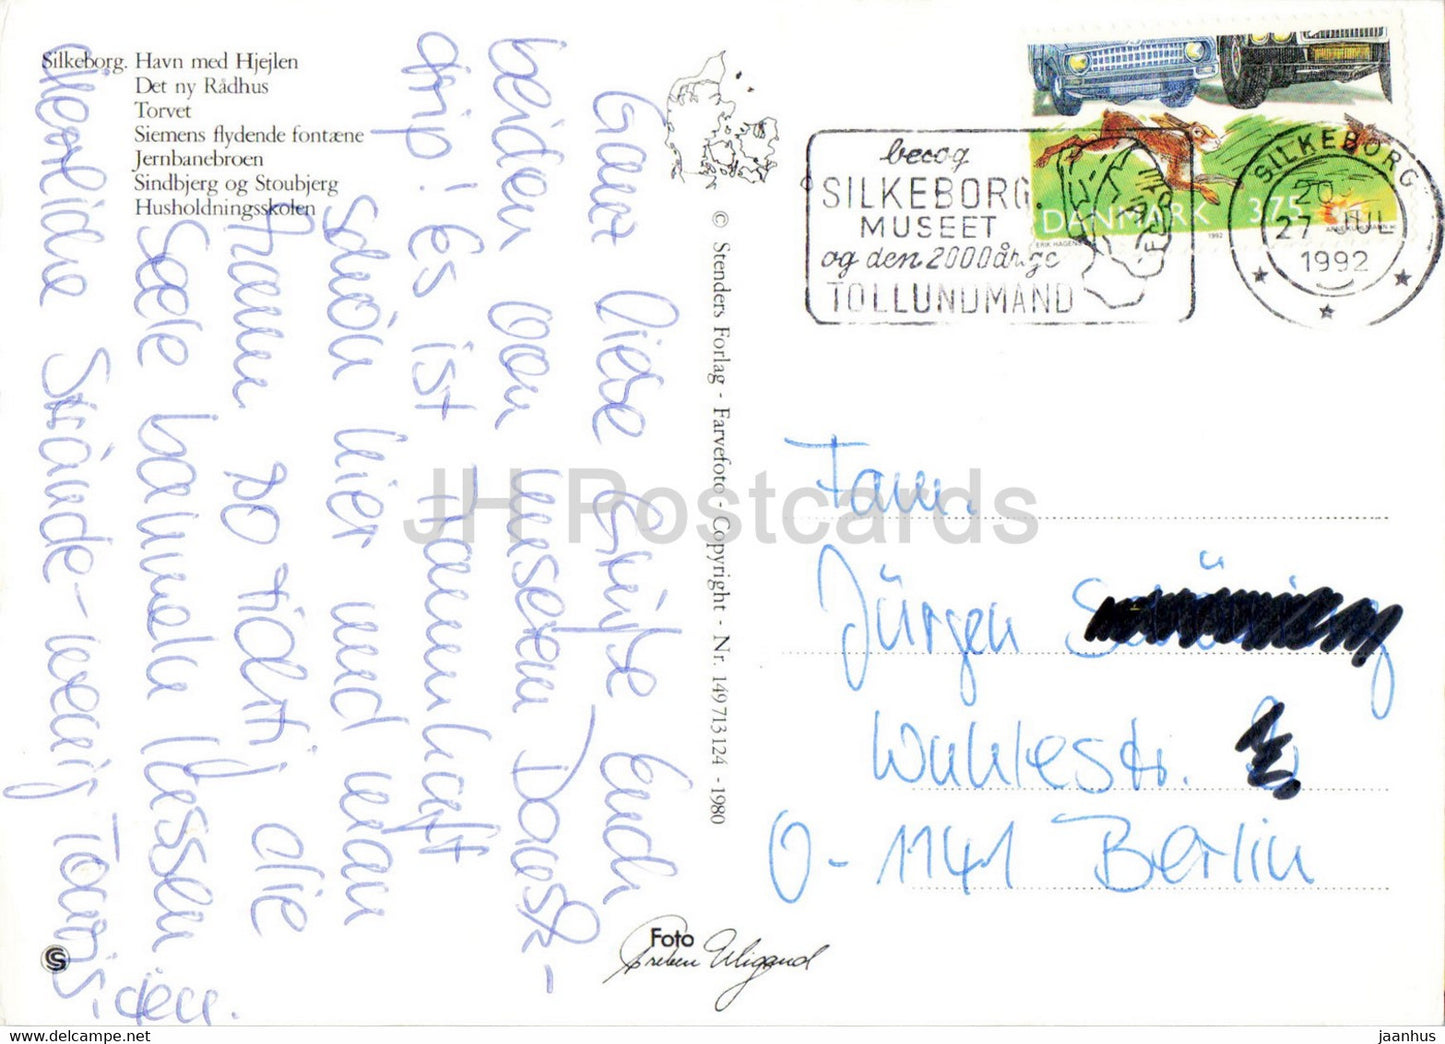 Silkeborg. Havn med Hjejlen
Det ny Rådhus
Torvet
Siemens flydende fontæne
Jernbanebroen
Sindbjerg og Stoubjerg
Husholdningsskolen
Ganz liebe Grüße Euch
beiden von unserem Dansk-
trip! Es ist traumhaft
schön hier und man
kann so richtig die
Seele baumeln lassen.
Herrliche Strände - wenig Touris
© Stenders Forlag - Farvefoto - Copyright - Nr. 149713124 - 1980
Foto
Preben Wigand
besøg
SILKEBORG
MUSEET
og den 2000 årige
TOLLUNDMAND
DANMARK 3.75
ERIK HAGENS 1992
SILKEBORG
20
27 JUL
1992
Fam.
Jürgen
Wuhlestr.
O-1141 Berlin
JH Postcards
delcampe.net
jaanhus